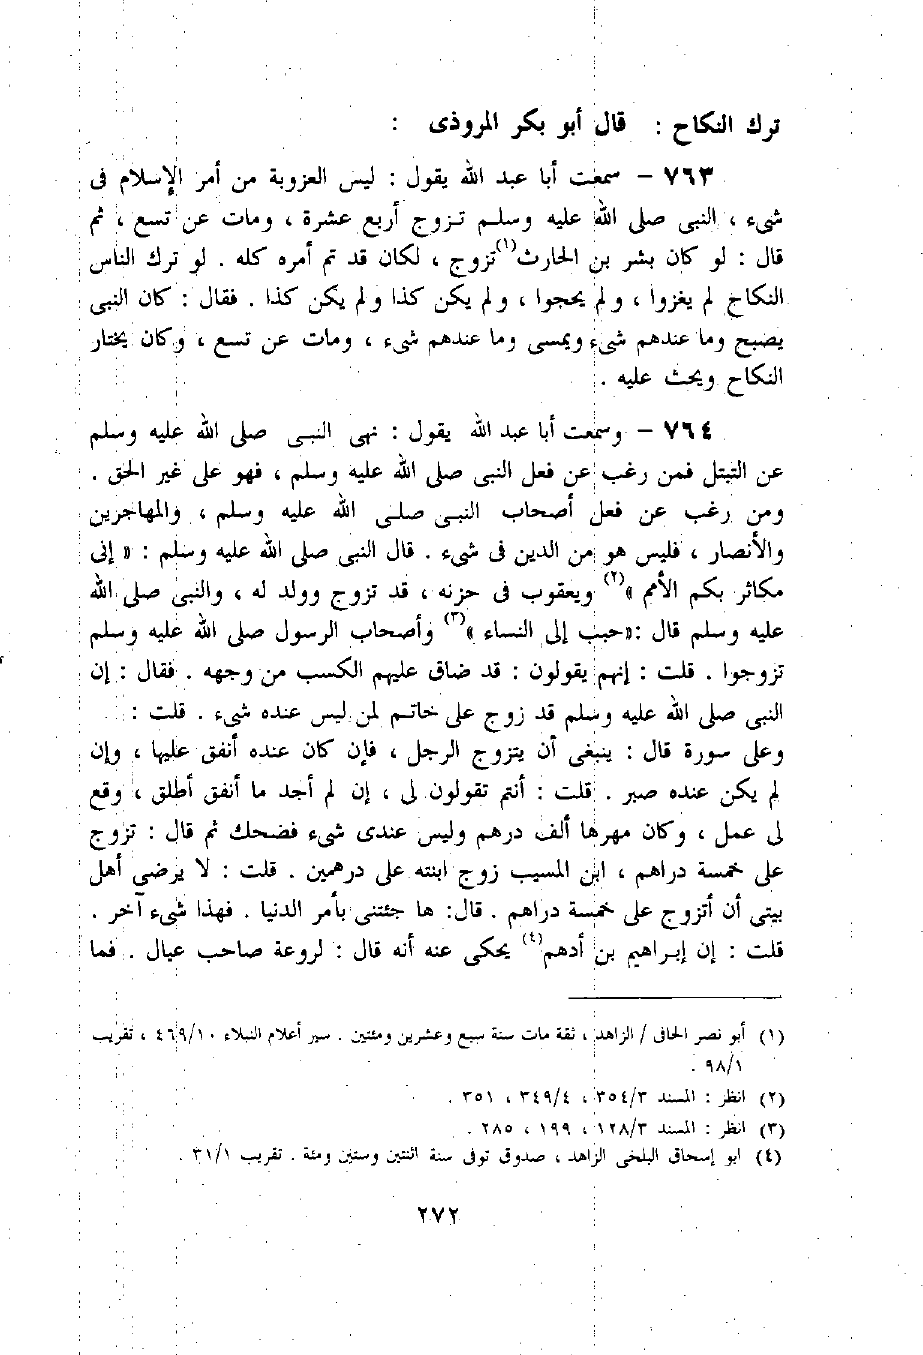 ترك النكاح : قال أبو بكر المروذى :
٧٦٣ – سمعت أبا عبد الله يقول : ليس العزوبة من أمر الإسلام فى
شىء ، النبى صلى الله عليه وسلم تزوج أربع عشرة ، ومات عن تسع ، ثم
قال : لو كان بشر بن الحارث(١) تزوج ، لكان قد تم أمره كله . لو ترك الناس
النكاح لم يغزوا ، ولم يحجوا ، ولم يكن كذا ولم يكن كذا . فقال : كان النبى
يصبح وما عندهم شىء ويمسى وما عندهم شىء ، ومات عن تسع ، وكان يختار
النكاح ويحث عليه .
٧٦٤ – وسمعت أبا عبد الله يقول : نهى النبى صلى الله عليه وسلم
عن التبتل فمن رغب عن فعل النبى صلى الله عليه وسلم ، فهو على غير الحق .
ومن رغب عن فعل أصحاب النبى صلى الله عليه وسلم ، والمهاجرين
والأنصار ، فليس هو من الدين فى شىء . قال النبى صلى الله عليه وسلم : « إنى
مكاثر بكم الأمم »(٢) ويعقوب فى حزنه ، قد تزوج وولد له ، والنبى صلى الله
عليه وسلم قال :«حبب إلى النساء »(٣) وأصحاب الرسول صلى الله عليه وسلم
تزوجوا . قلت : إنهم يقولون : قد ضاق عليهم الكسب من وجهه . فقال : إن
النبى صلى الله عليه وسلم قد زوج على خاتم لمن ليس عنده شىء . قلت :
وعلى سورة قال : ينبغى أن يتزوج الرجل ، فإن كان عنده أنفق عليها ، وإن
لم يكن عنده صبر . قلت : أنتم تقولون لى ، إن لم أجد ما أنفق أطلق ، وقع
لى عمل ، وكان مهرها ألف درهم وليس عندى شىء فضحك ثم قال : تزوج
على خمسة دراهم ، ابن المسيب زوج ابنته على درهمين . قلت : لا يرضى أهل
بيتى أن أتزوج على خمسة دراهم . قال: ها جئتنى بأمر الدنيا . فهذا شىء آخر .
قلت : إن إبراهيم بن أدهم(٤) يحكى عنه أنه قال : لروعة صاحب عيال . فما
(١) أبو نصر الحافى / الزاهد ، ثقة مات سنة سبع وعشرين ومئتين . سير أعلام النبلاء ٤٦٩/١٠ ، تقريب
٩٨/١ .
(٢) انظر : المسند ٣٥٤/٣ ، ٣٤٩/٤ ، ٣٥١ .
(٣) انظر : المسند ١٢٨/٣ ، ١٩٩ ، ٢٨٥ .
(٤) ابو إسحاق البلخى الزاهد ، صدوق توفى سنة اثنتين وستين ومئة . تقريب ٣١/١ .
٢٧٢